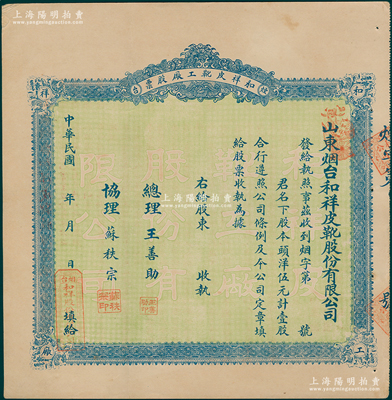 上海陽明拍賣
www.yangmingauction.com
和祥皮靴工廠股票
山東烟台和祥皮靴股份有限公司
發給執照事茲收到烟字第 號
君名下股本頭洋伍元計壹股
合行遵照公司條例及今公司定章填
給股票收執為據
右給股東 收執
總理 王善助
協理 蘇秩宗
中華民國 年 月 日 填給
上海陽明拍賣
www.yangmingauction.com